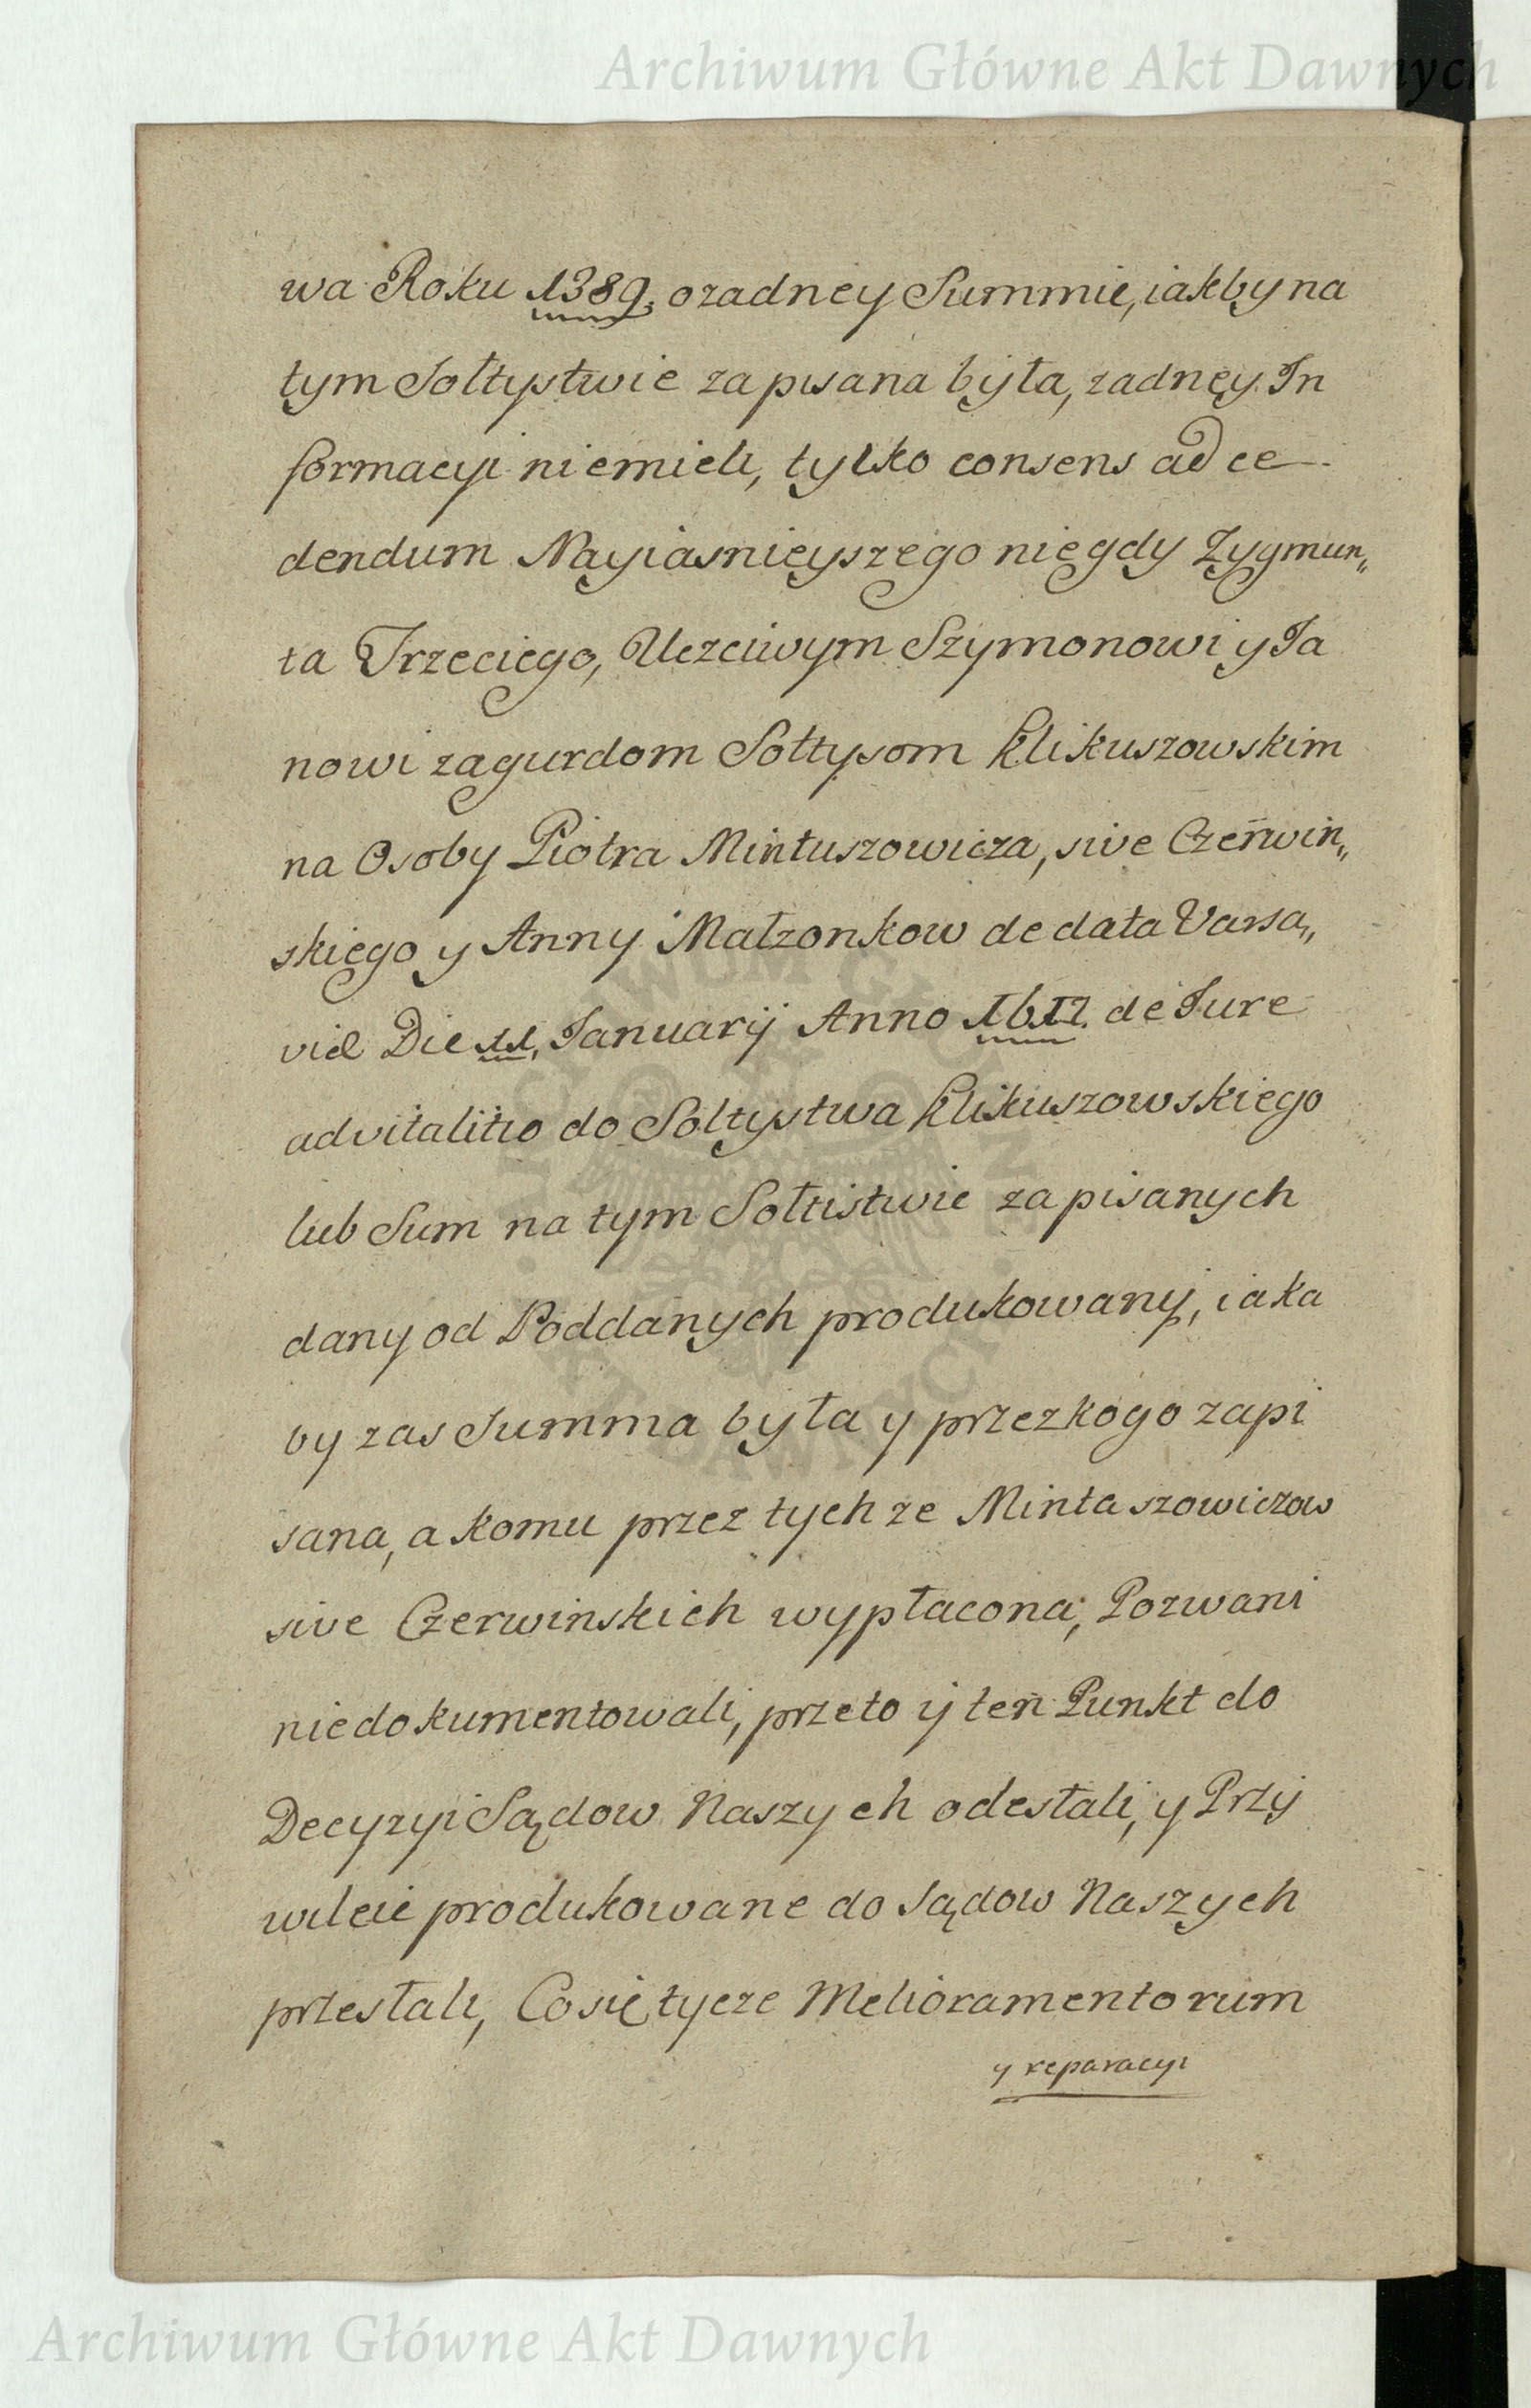 Archiwum Główne Akt Dawnych
wa Roku 1389. ozadney Summie, iakby na
tym Sołtystwie zapisana była, zadney In
formacyi niemieli, tylko consens ad ce
dendum Nayiasnieyszego niegdy Zygmun„
ta Trzeciego, Uczciwym Szymonowi y Ja
nowi zagurdom Sołtysom Klikuszowskim
na Osoby Piotra Mintuszowicza, sive Czerwin„
skiego y Anny Małzonkow de data Varsa„
viæ Die 11. Januarij Anno 1617. de Jure
advitalitio do Soltystwa Klikuszowskiego
lub Sum na tym Sołtistwie zapisanych
dany od Poddanych produkowany, iaka
by zas Summa była y przezkogo zapi
sana, a komu przez tychze Mintaszowiczow
sive Czerwinskich wypłacona, Pozwani
niedokumentowali, przeto ij ten Punkt do
Decyzyi Sądow Naszych odesłali, y Przy
wileie produkowane do Sądow Naszych
przesłali, Co się tycze Melioramentorum
y reparacyi
Archiwum Główne Akt Dawnych